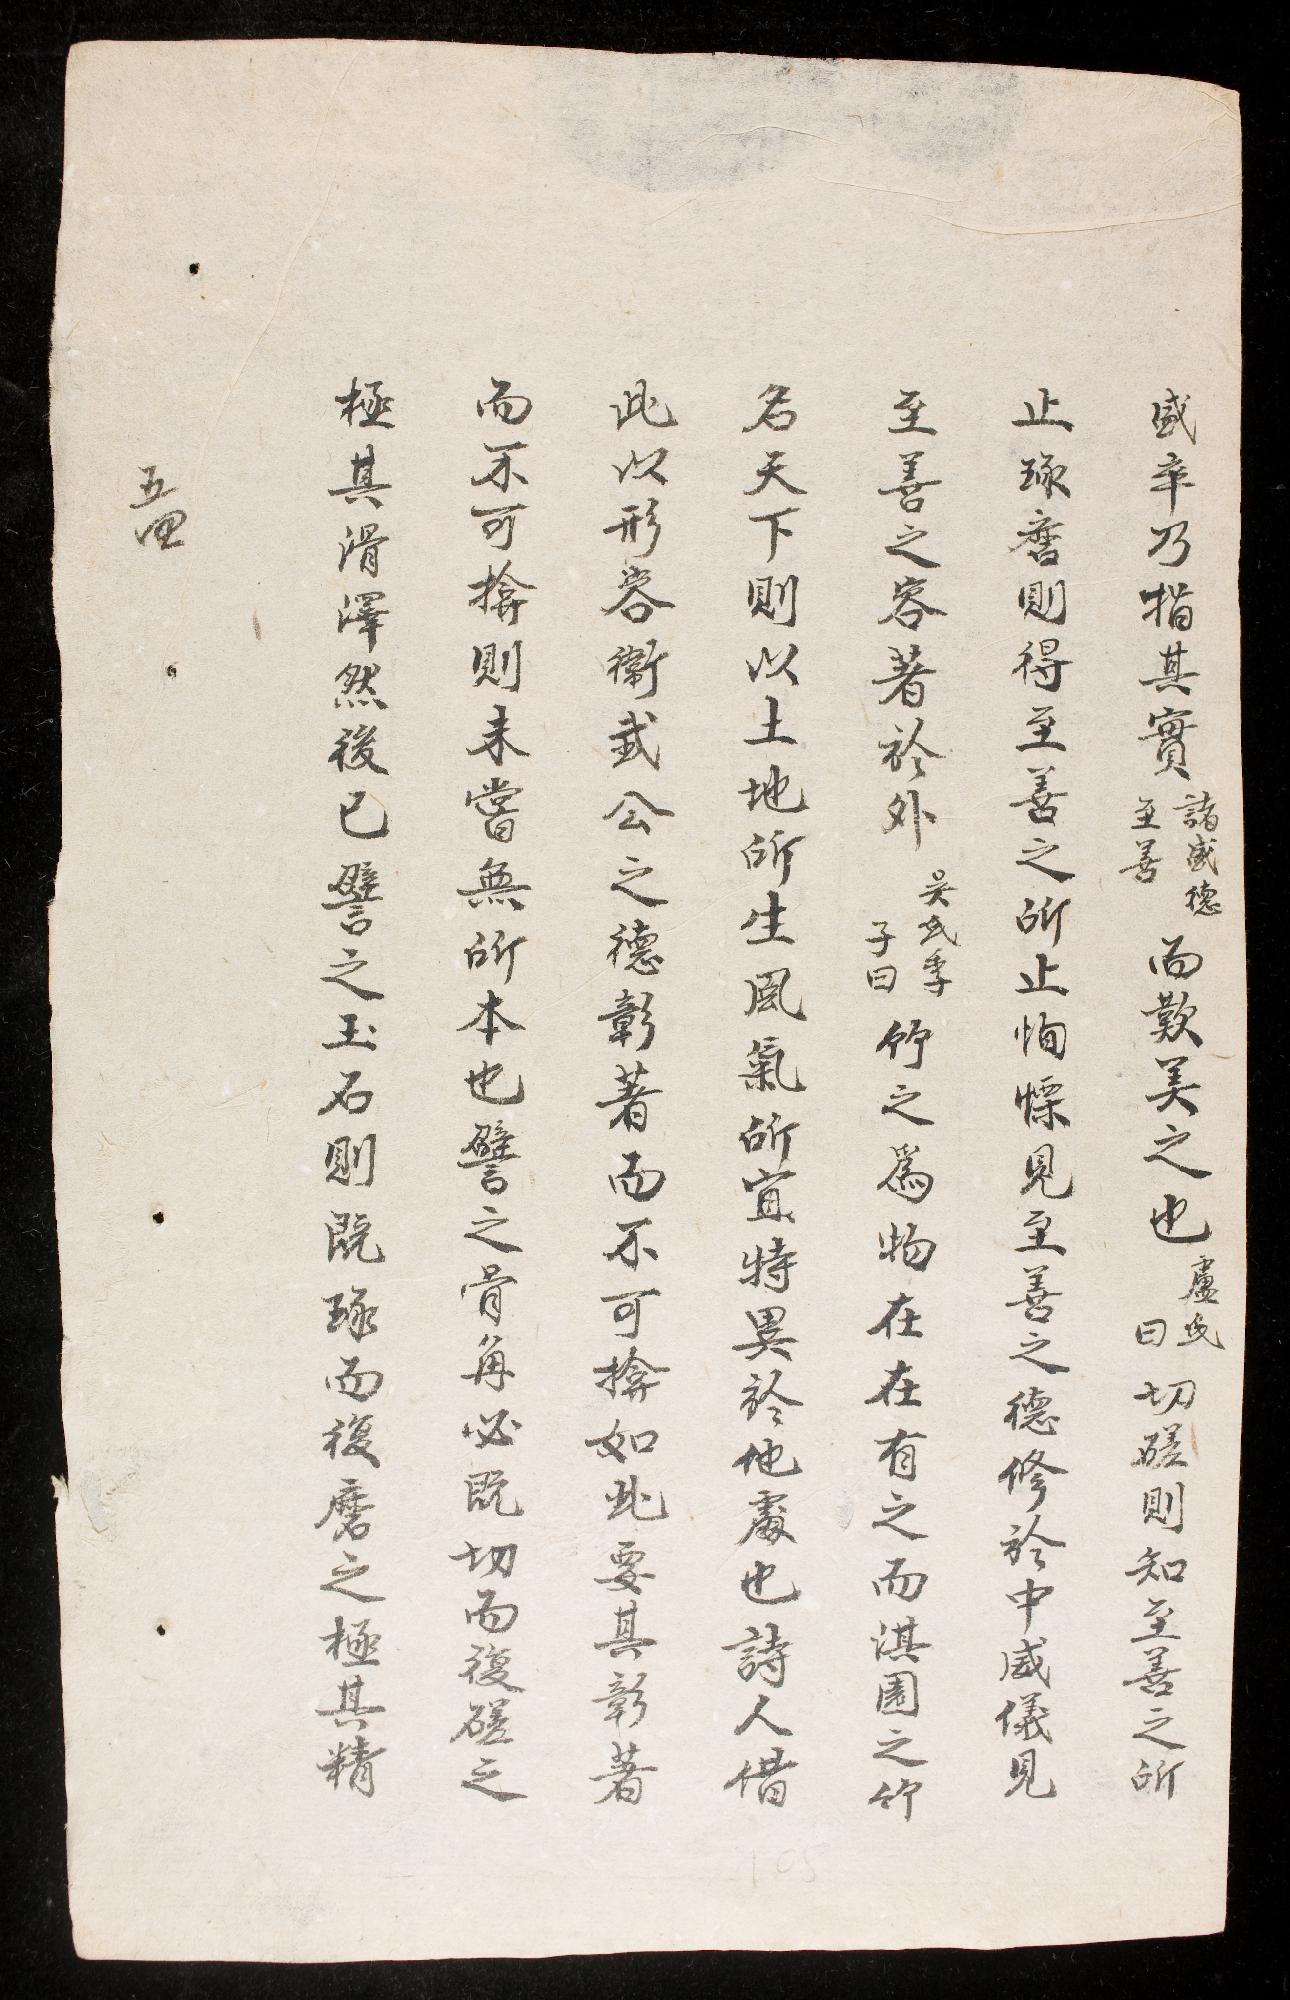 盛卒乃指其實諸盛德至善而歎美之也盧氏曰切磋則知至善之所
止琢磨則得至善之所止恂慄見至善之德修於中威儀見
至善之容著於外吴氏季子曰竹之爲物在在有之而淇園之竹
名天下則以土地所生風氣所宜特異於他處也詩人借
此以形容衛武公之德彰著而不可揜如此要其彰著
而不可揜則未嘗無所本也譬之骨角必既切而復磋之
極其滑澤然後已譬之玉石則既琢而復磨之極其精
五四
105